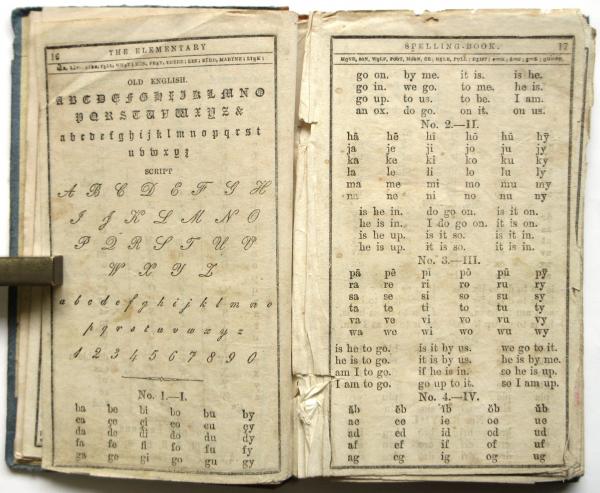 16 THE ELEMENTARY
OLD ENGLISH.
A B C D E F G H I J K L M N O
P Q R S T U V W X Y Z &
a b c d e f g h i j k l m n o p q r s t
u b w x y z
SCRIPT
A B C D E F G H
I J K L M N O
P Q R S T U V
W X Y Z
a b c d e f g h i j k l m n o
p q r s t u v w x y z
1 2 3 4 5 6 7 8 9 0
No. 1.—I.
ba be bi bo bu by
ca ce ci co cu cy
da de di do du dy
fa fe fi fo fu fy
ga ge gi go gu gy
SPELLING-BOOK. 17
go on. by me. it is. is he.
go in. we go. to me. he is.
go up. to us. to be. I am.
an ox. do go. on it. on us.
No. 2.—II.
hā hē hī hō hū hȳ
ja je ji jo ju jy
ka ke ki ko ku ky
la le li lo lu ly
ma me mi mo mu my
na ne ni no nu ny
is he in. do go on. is it on.
he is in. I do go on. it is on.
is he up. is it so. is it in.
he is up. it is so. it is in.
No. 3.—III.
pā pē pī pō pū pȳ
ra re ri ro ru ry
sa se si so su sy
ta te ti to tu ty
va ve vi vo vu vy
wa we wi wo wu wy
is he to go. is it by us. we go to it.
he is to go. it is by us. he is by me.
am I to go. if he is in. so he is up.
I am to go. go up to it. so I am up.
No. 4.—IV.
ăb ĕb ĭb ŏb ŭb
ac ec ic oc uc
ad ed id od ud
af ef if of uf
ag eg ig og ug